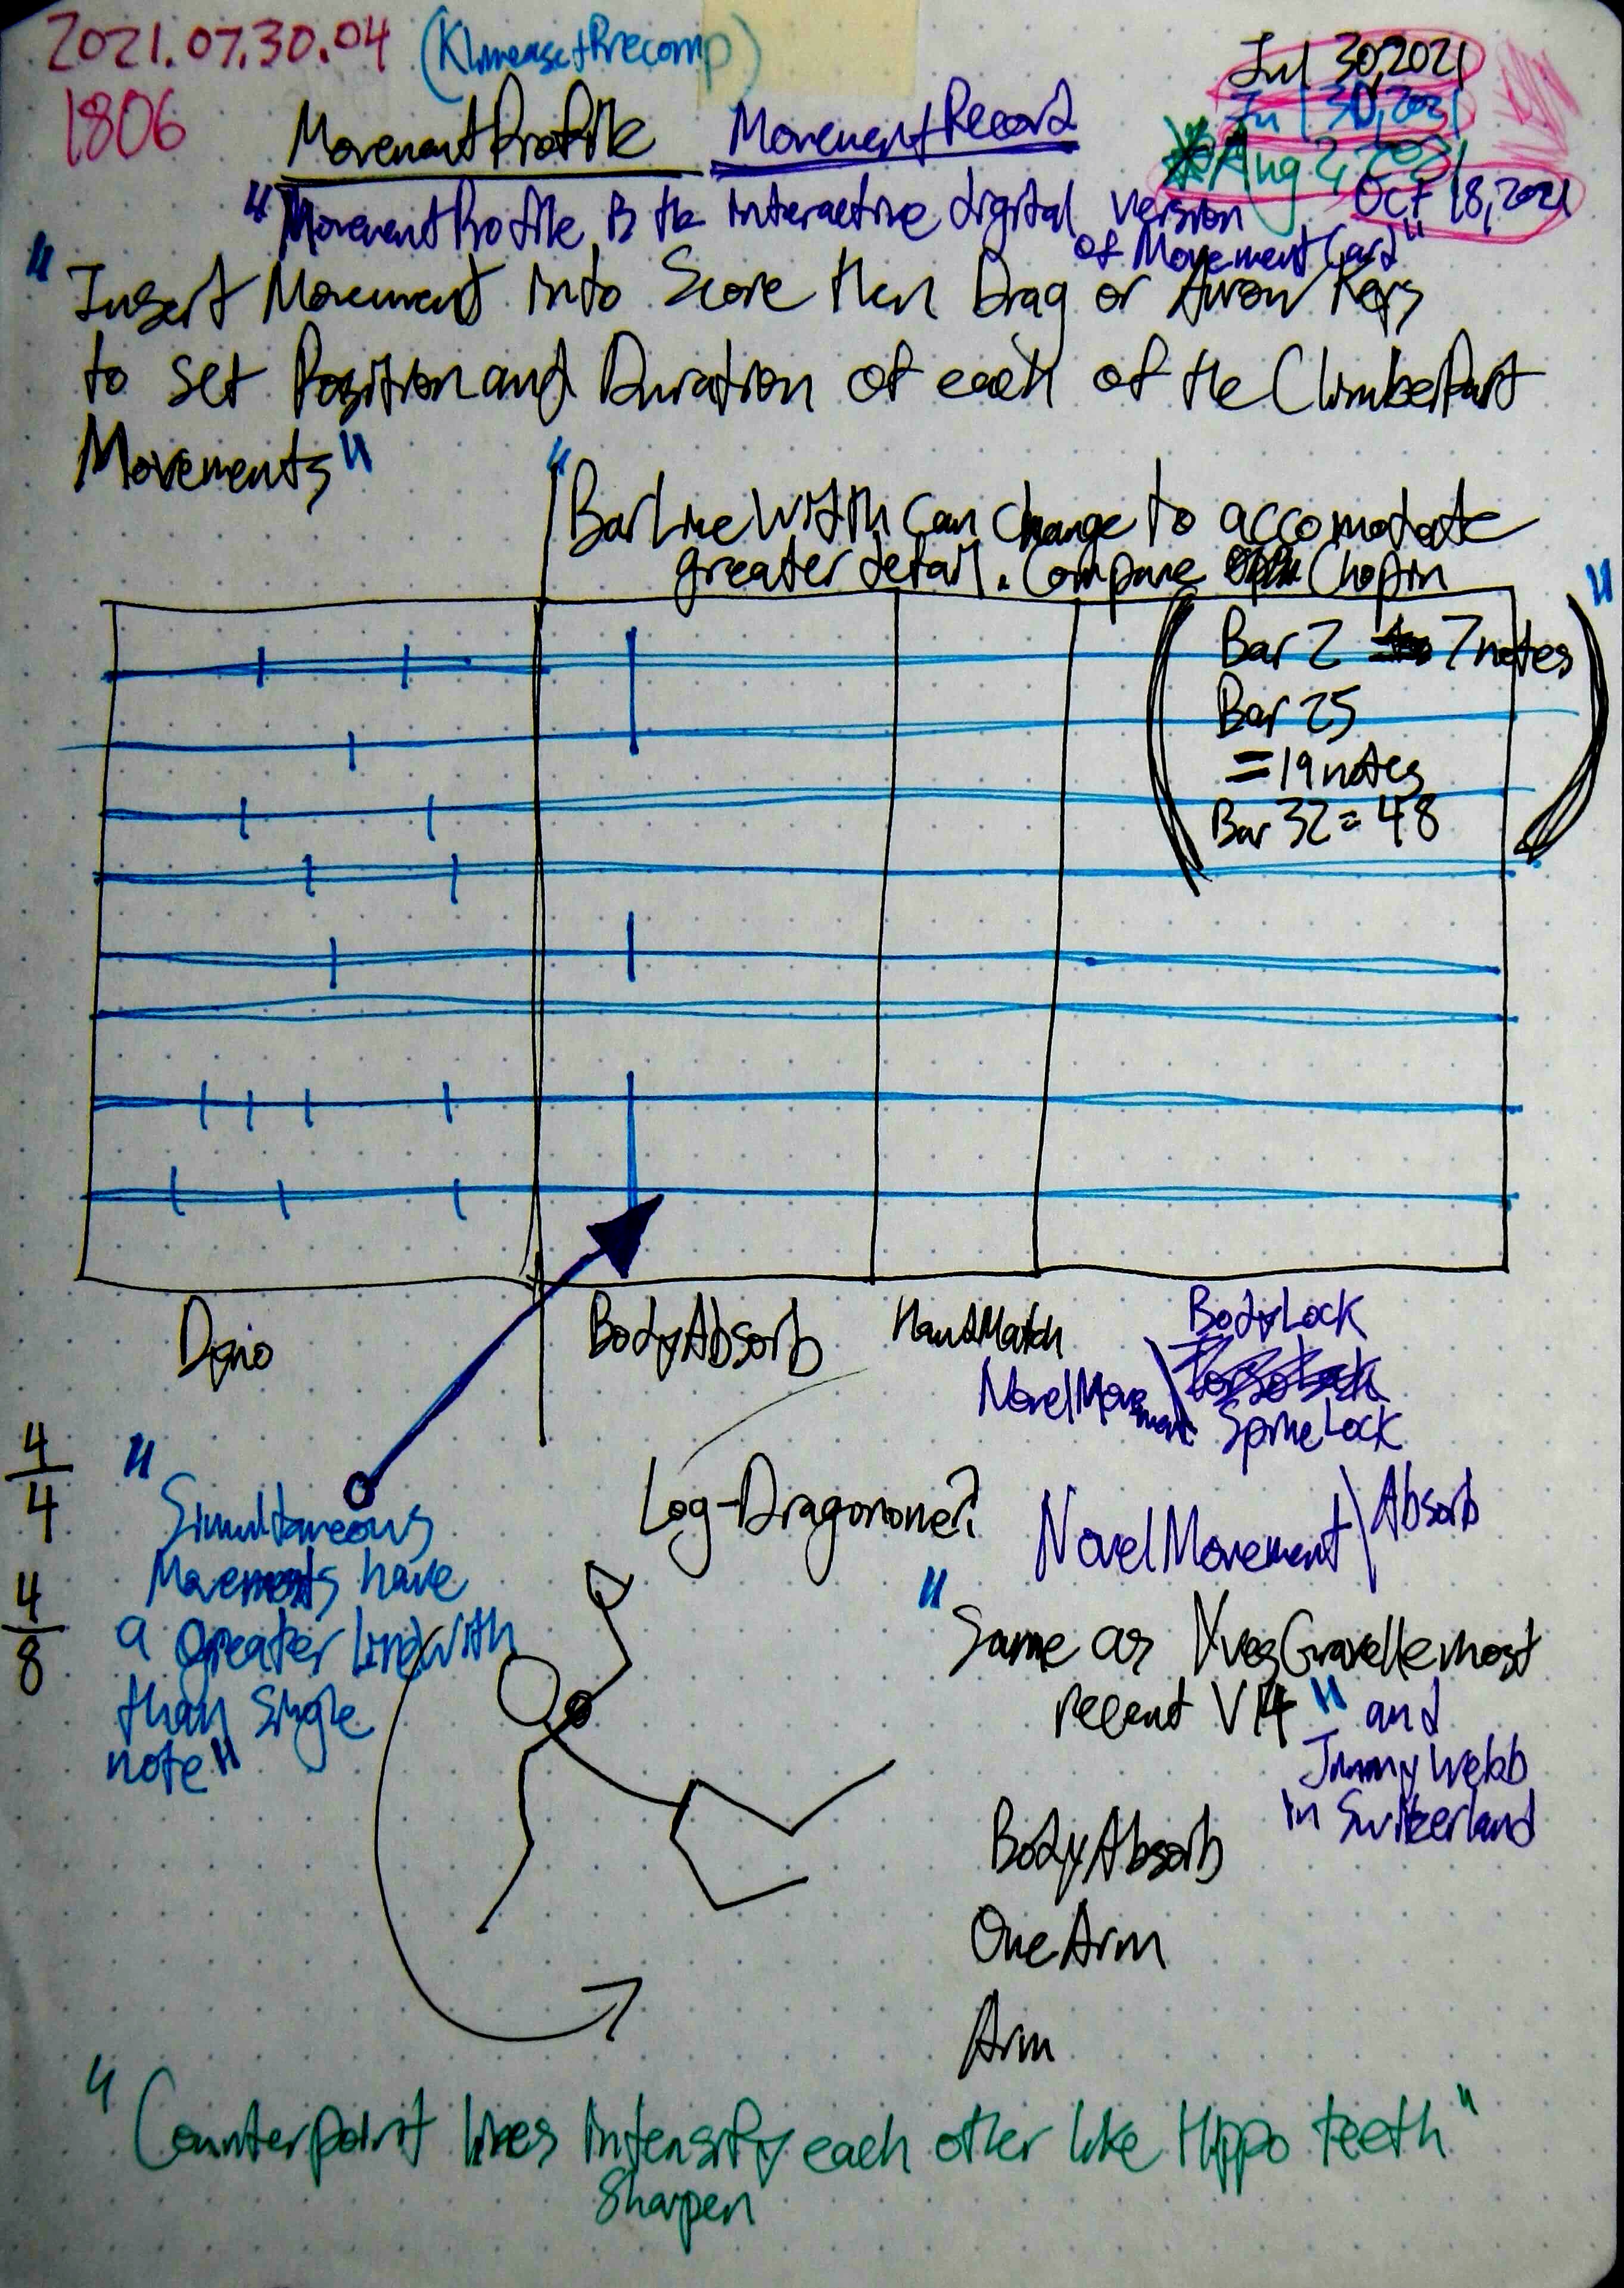 2021.07.30.04 (KlimeasetPrecomp)
1806
Jul 30, 2021
Jul 30, 2021
Aug 2, 2021
Oct 18, 2021
MovementProfile MovementRecord
"MovementProfile is the interactive digital version
of MovementCard"
"Insert Movement into Score then Drag or Arrow Keys
to set Position and Duration of each of the ClimberPart
Movements"
"BarLineWidth can change to accomodate
greater detail. Compare Chopin
(Bar 2 7 notes
Bar 25
=19 notes
Bar 32 = 48)"
Dyno
BodyAbsorb
HandMatch
BodyLock
NovelMovement\
SpineLock
4/4
4/8
"Simultaneous
Movements have
a greater linewith
than single
note"
Log-Dragonone?
NovelMovement\Absorb
"Same as YvesGravelle most
recent V14" and
Jimmy Webb
in Switzerland
BodyAbsorb
OneArm
Arm
"Counterpoint lines intensify each other like Hippo teeth"
sharpen